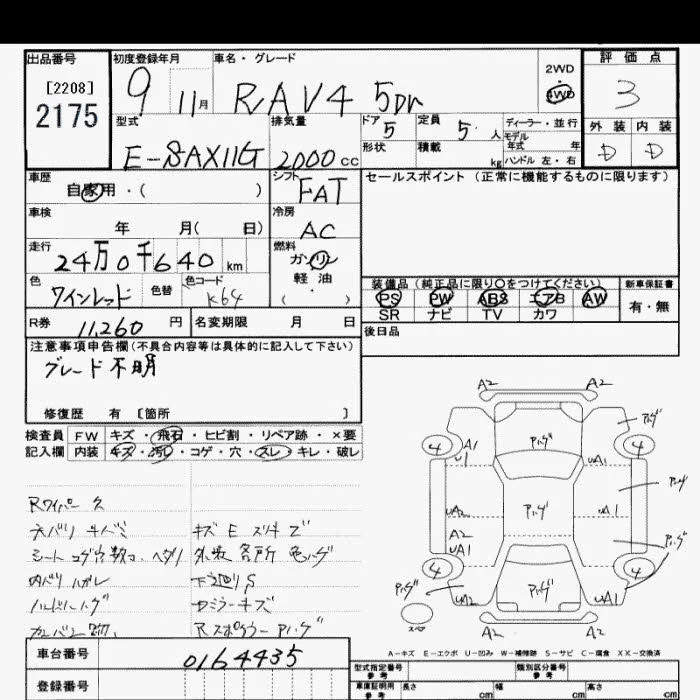 出品番号 初度登録年月 車名・グレード 評価点
[2208] 2175
9 11月 RAV4 5Dr 2WD 4WD 3
型式 排気量 ドア 定員 ディーラー・並行 外装 内装
E-SAX11G 2000cc 5 5人 モデル年式 年 D D
形状 積載 kg ハンドル 左・右
車歴 シフト セールスポイント(正常に機能するものに限ります)
自家用・( ) FAT
車検 冷房
年 月( 日) AC
走行 燃料
24万0千640km ガソリン
軽油
色 色替 色コード ・( )
ワインレッド K64
装備品(純正品に限り○をつけてください) 新車保証書
PS PW ABS エアB AW 有・無
SR ナビ TV カワ
R券 11,260円 名変期限 月 日 後日品
注意事項申告欄(不具合内容等は具体的に記入して下さい)
グレード不明
修復歴 有 〔箇所 〕
検査員 FW キズ・飛石・ヒビ割・リペア跡・×要
記入欄 内装 キズ・汚れ・コゲ・穴・スレ・キレ・破レ
Rワイパー欠
キズ E ズリキズ
シート コゲ穴
外装 各所 色ハゲ
内バリ ハガレ 下廻りS
ハンドルハゲ
Rスポイラー Pハゲ
A2 A2
Pハゲ Pハゲ
4 A1 4
U1 UA1
Pハゲ
UA2 Pハゲ UA1
A2
UA1 Pハゲ
4 4
Pハゲ UA2 Pハゲ UA1
スペア
A2 A2
A-キズ E-エクボ U-凹み W-補修跡 S-サビ C-腐食 XX-交換済
車台番号 0164435
登録番号
型式指定番号 参考 類別区分番号 参考
車庫証明用 参考 長さ cm 幅 cm 高さ cm